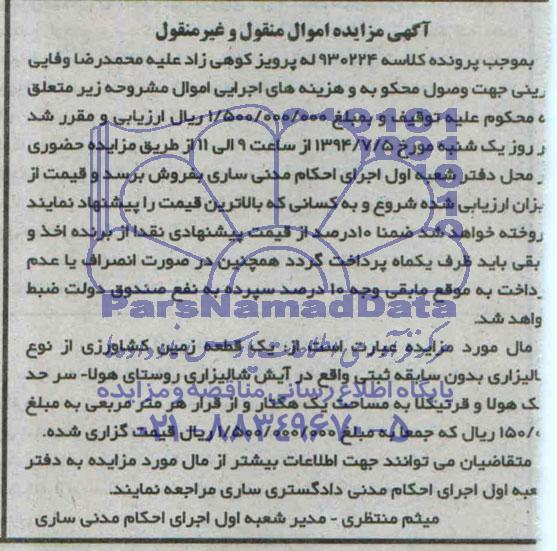 آگهی مزایده اموال منقول و غیرمنقول
بموجب پرونده کلاسه ۹۳۰۲۲۴ له پرویز کوهی زاد علیه محمدرضا وفایی
رینی جهت وصول محکو به و هزینه های اجرایی اموال مشروحه زیر متعلق
ه محکوم علیه توقیف و بمبلغ ۱/۵۰۰/۰۰۰/۰۰۰ ریال ارزیابی و مقرر شد
ر روز یک شنبه مورخ ۱۳۹۴/۷/۵ از ساعت ۹ الی ۱۱ از طریق مزایده حضوری
ر محل دفتر شعبه اول اجرای احکام مدنی ساری بفروش برسد و قیمت از
یزان ارزیابی شده شروع و به کسانی که بالاترین قیمت را پیشنهاد نمایند
روخته خواهد شد ضمنا ۱۰درصد از قیمت پیشنهادی نقدا از برنده اخذ و
بقی باید ظرف یکماه پرداخت گردد همچنین در صورت انصراف یا عدم
رداخت به موقع مابقی وجه ۱۰ درصد سپرده به نفع صندوق دولت ضبط
واهد شد.
ParsNamadData
مال مورد مزایده عبارت است از: یک قطعه زمین کشاورزی از نوع
الیزاری بدون سابقه ثبتی واقع در آیش شالیزاری روستای هولا- سر حد
پایگاه اطلاع رسانی مناقصه و مزایده
ک هولا و قرتیکلا به مساحت یک هکتار و از قرار هر متر مربعی به مبلغ
۱۵۰/۰ ریال که جمعا به مبلغ ۱/۵۰۰/۰۰۰/۰۰۰ ریال قیمت گزاری شده.
۰۲۱-۸۸۳۴۹۶۷۰-۵
متقاضیان می توانند جهت اطلاعات بیشتر از مال مورد مزایده به دفتر
عبه اول اجرای احکام مدنی دادگستری ساری مراجعه نمایند.
میثم منتظری - مدیر شعبه اول اجرای احکام مدنی ساری